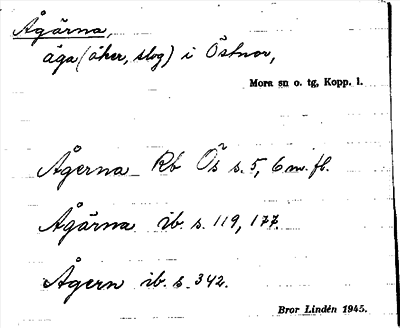 Ågärna,
äga (åker, slog) i Östnor,
Mora sn o. tg, Kopp. l.
Ågerna - Rb Ös s. 5, 6 m. fl.
Ågärna ib. s. 119, 177.
Ågern ib. s. 342.
Bror Lindén 1945.